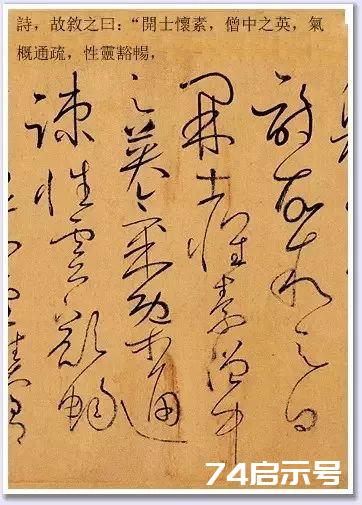 詩，故敘之曰：“開士懷素，僧中之英，氣
概通疏，性靈豁暢，
故敘之曰
開士懷素僧中
之英氣概通
疎性靈豁暢
74启示号